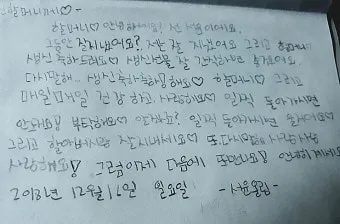 할머니께♡-
할머니♡ 안녕하세요? 전 서윤이에요.
그동안 잘지냈어요? 저는 잘 지냈어요 그리고 할머니
생신 축하드려요♡ 생신선물 잘 간직하시면 좋겠어요.
다시말해.. 생신축하축하해요♡ 할머니♡ 그리고
매일매일 건강하고 사랑해요♡ 일찍 돌아가시면
안돼요! 부탁해요♡ 일찍 돌아가시면
그리고 할아버지랑 잘 지내세요♡ 또다시말해 사랑사랑
사랑해요! 그럼이제 다음에 또만나요! 안녕히계세요
12월 16일 일요일 -서윤올림-